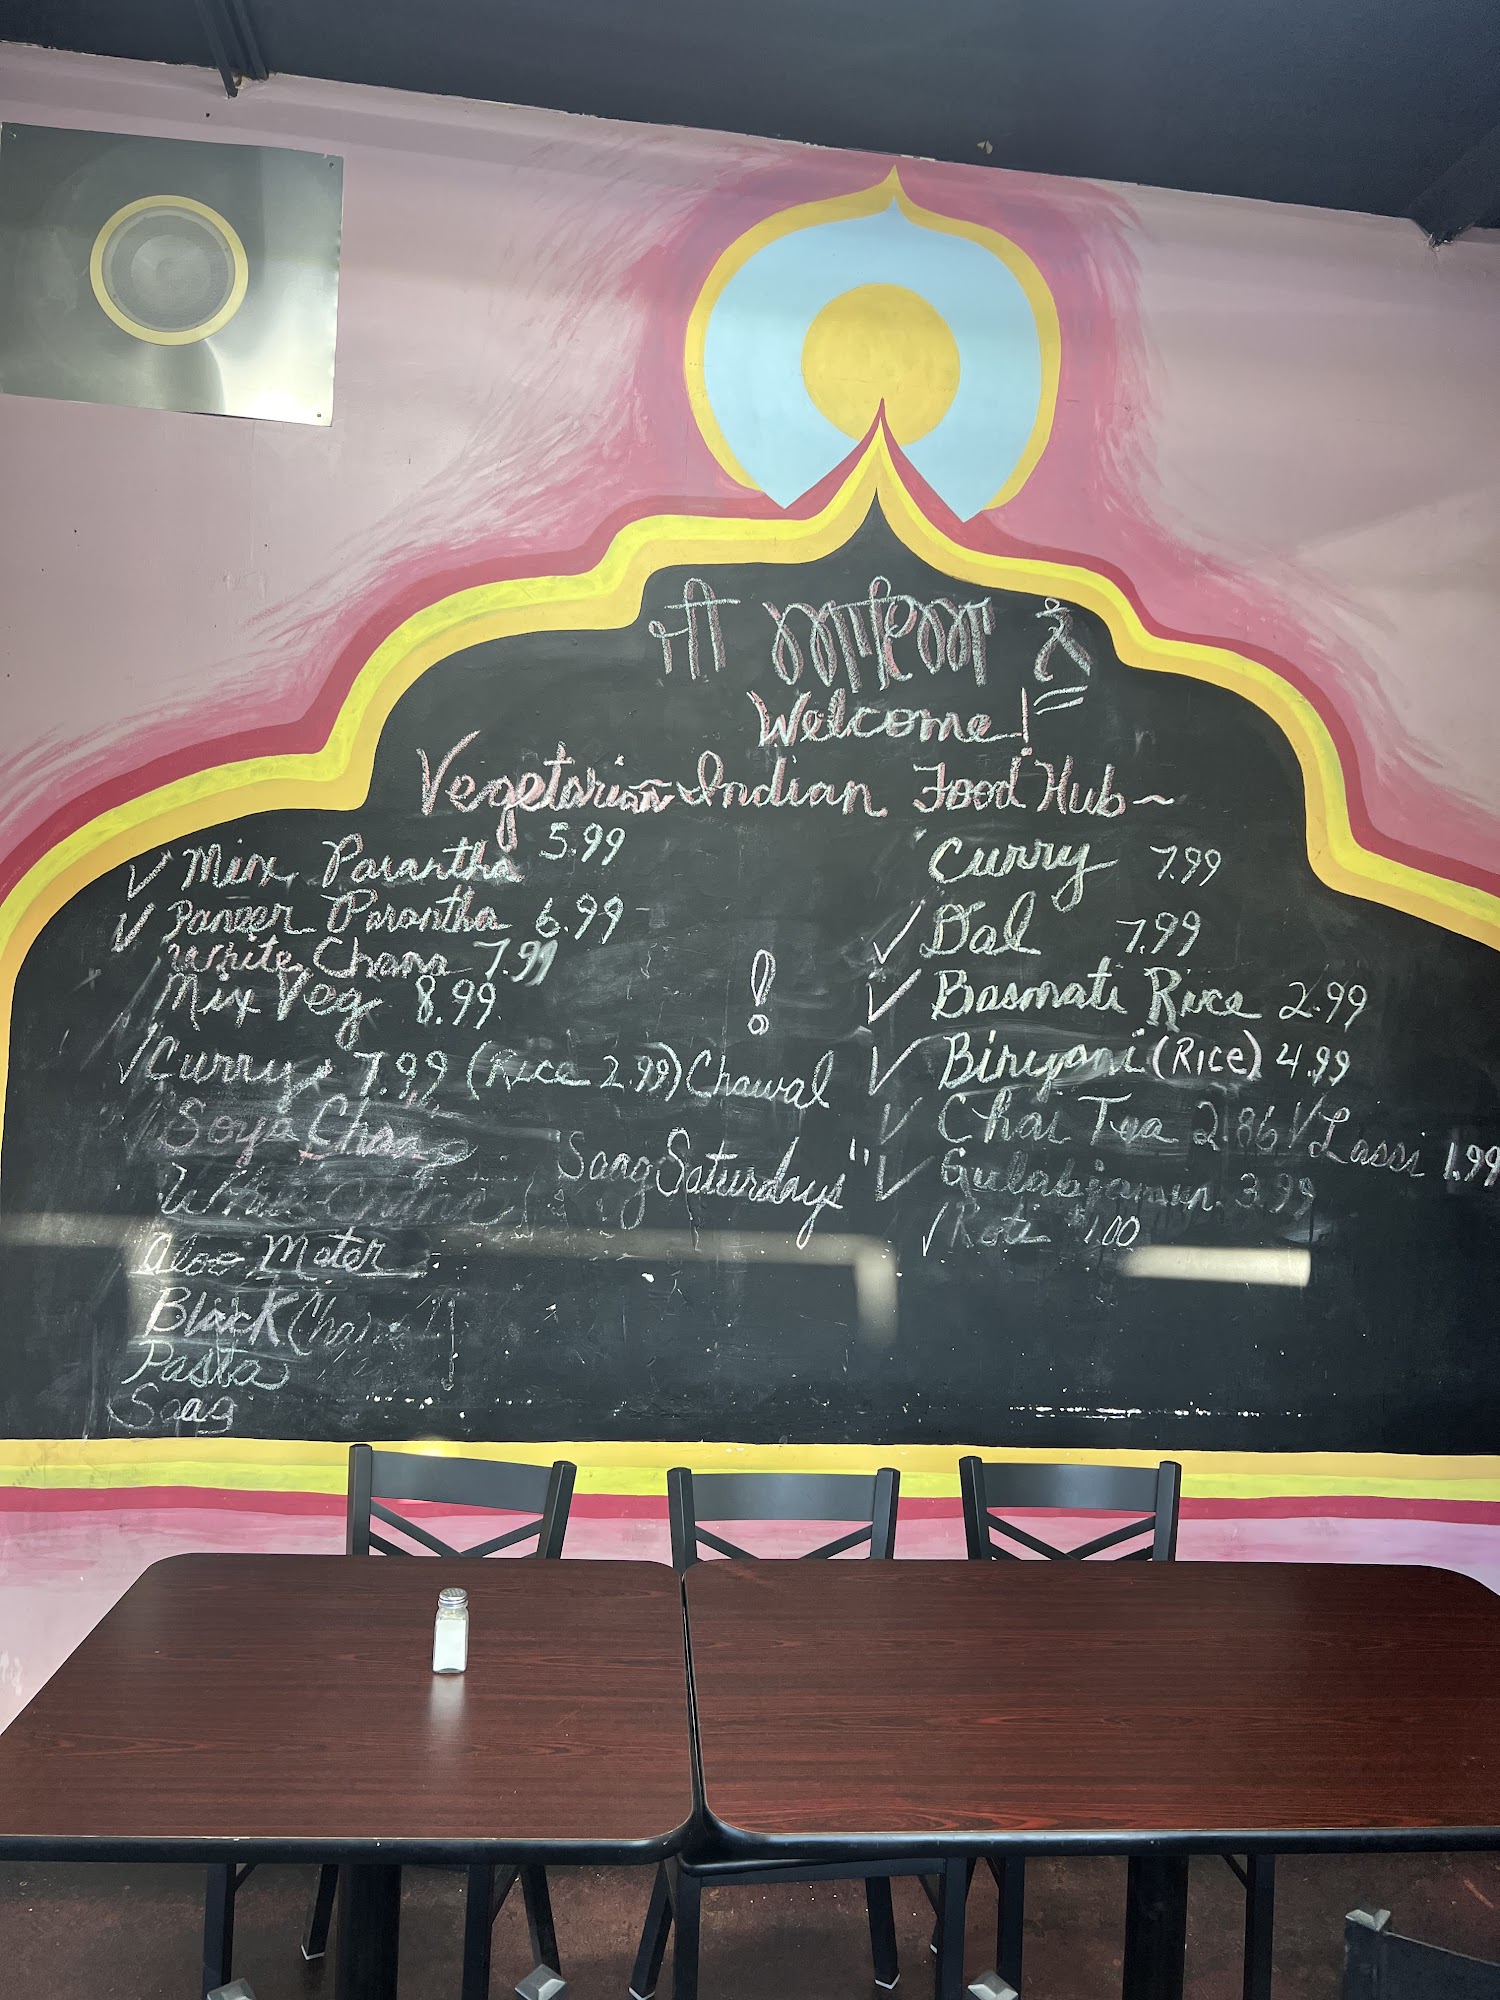 ਜੀ ਆਇਆ ਨੂੰ
Welcome!
Vegetarian Indian Food Hub~
✓ Mix Parantha 5.99
✓ Paneer Parantha 6.99
White Chana 7.99
Mix Veg 8.99
✓ Curry 7.99 (Rice 2.99) Chawal
Soya Chaap
White Chana
Aloo Mater
Black Chana
Pasta
Saag
!
Saag Saturdays"
Curry 7.99
✓ Dal 7.99
✓ Basmati Rice 2.99
✓ Biriyani (RICE) 4.99
✓ Chai Tea 2.86 ✓ Lassi 1.99
✓ Gulabjamun 3.99
✓ Roti $1.00